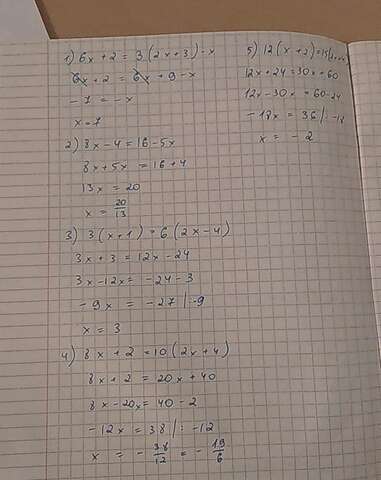 1) 6x + 2 = 3(2x+3) - x
6x + 2 = 6x + 9 - x
- 7 = - x
x = 7
2) 8x - 4 = 16 - 5x
8x + 5x = 16 + 4
13x = 20
x = 20/13
3) 3(x+1) = 6(2x-4)
3x + 3 = 12x - 24
3x - 12x = -24 - 3
- 9x = -27 |:-9
x = 3
4) 8x + 2 = 10(2x+4)
8x + 2 = 20x + 40
8x - 20x = 40 - 2
- 12x = 38 |: -12
x = - 38/12 = - 19/6
5) 12(x+2) = 15(
12x + 24 = 30x + 60
12x - 30x = 60 - 24
- 18x = 36 |: -18
x = - 2